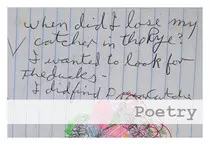 when did I lose my
catcher in the Rye?
I wanted to look for
the ducks -
I did find
Poetry